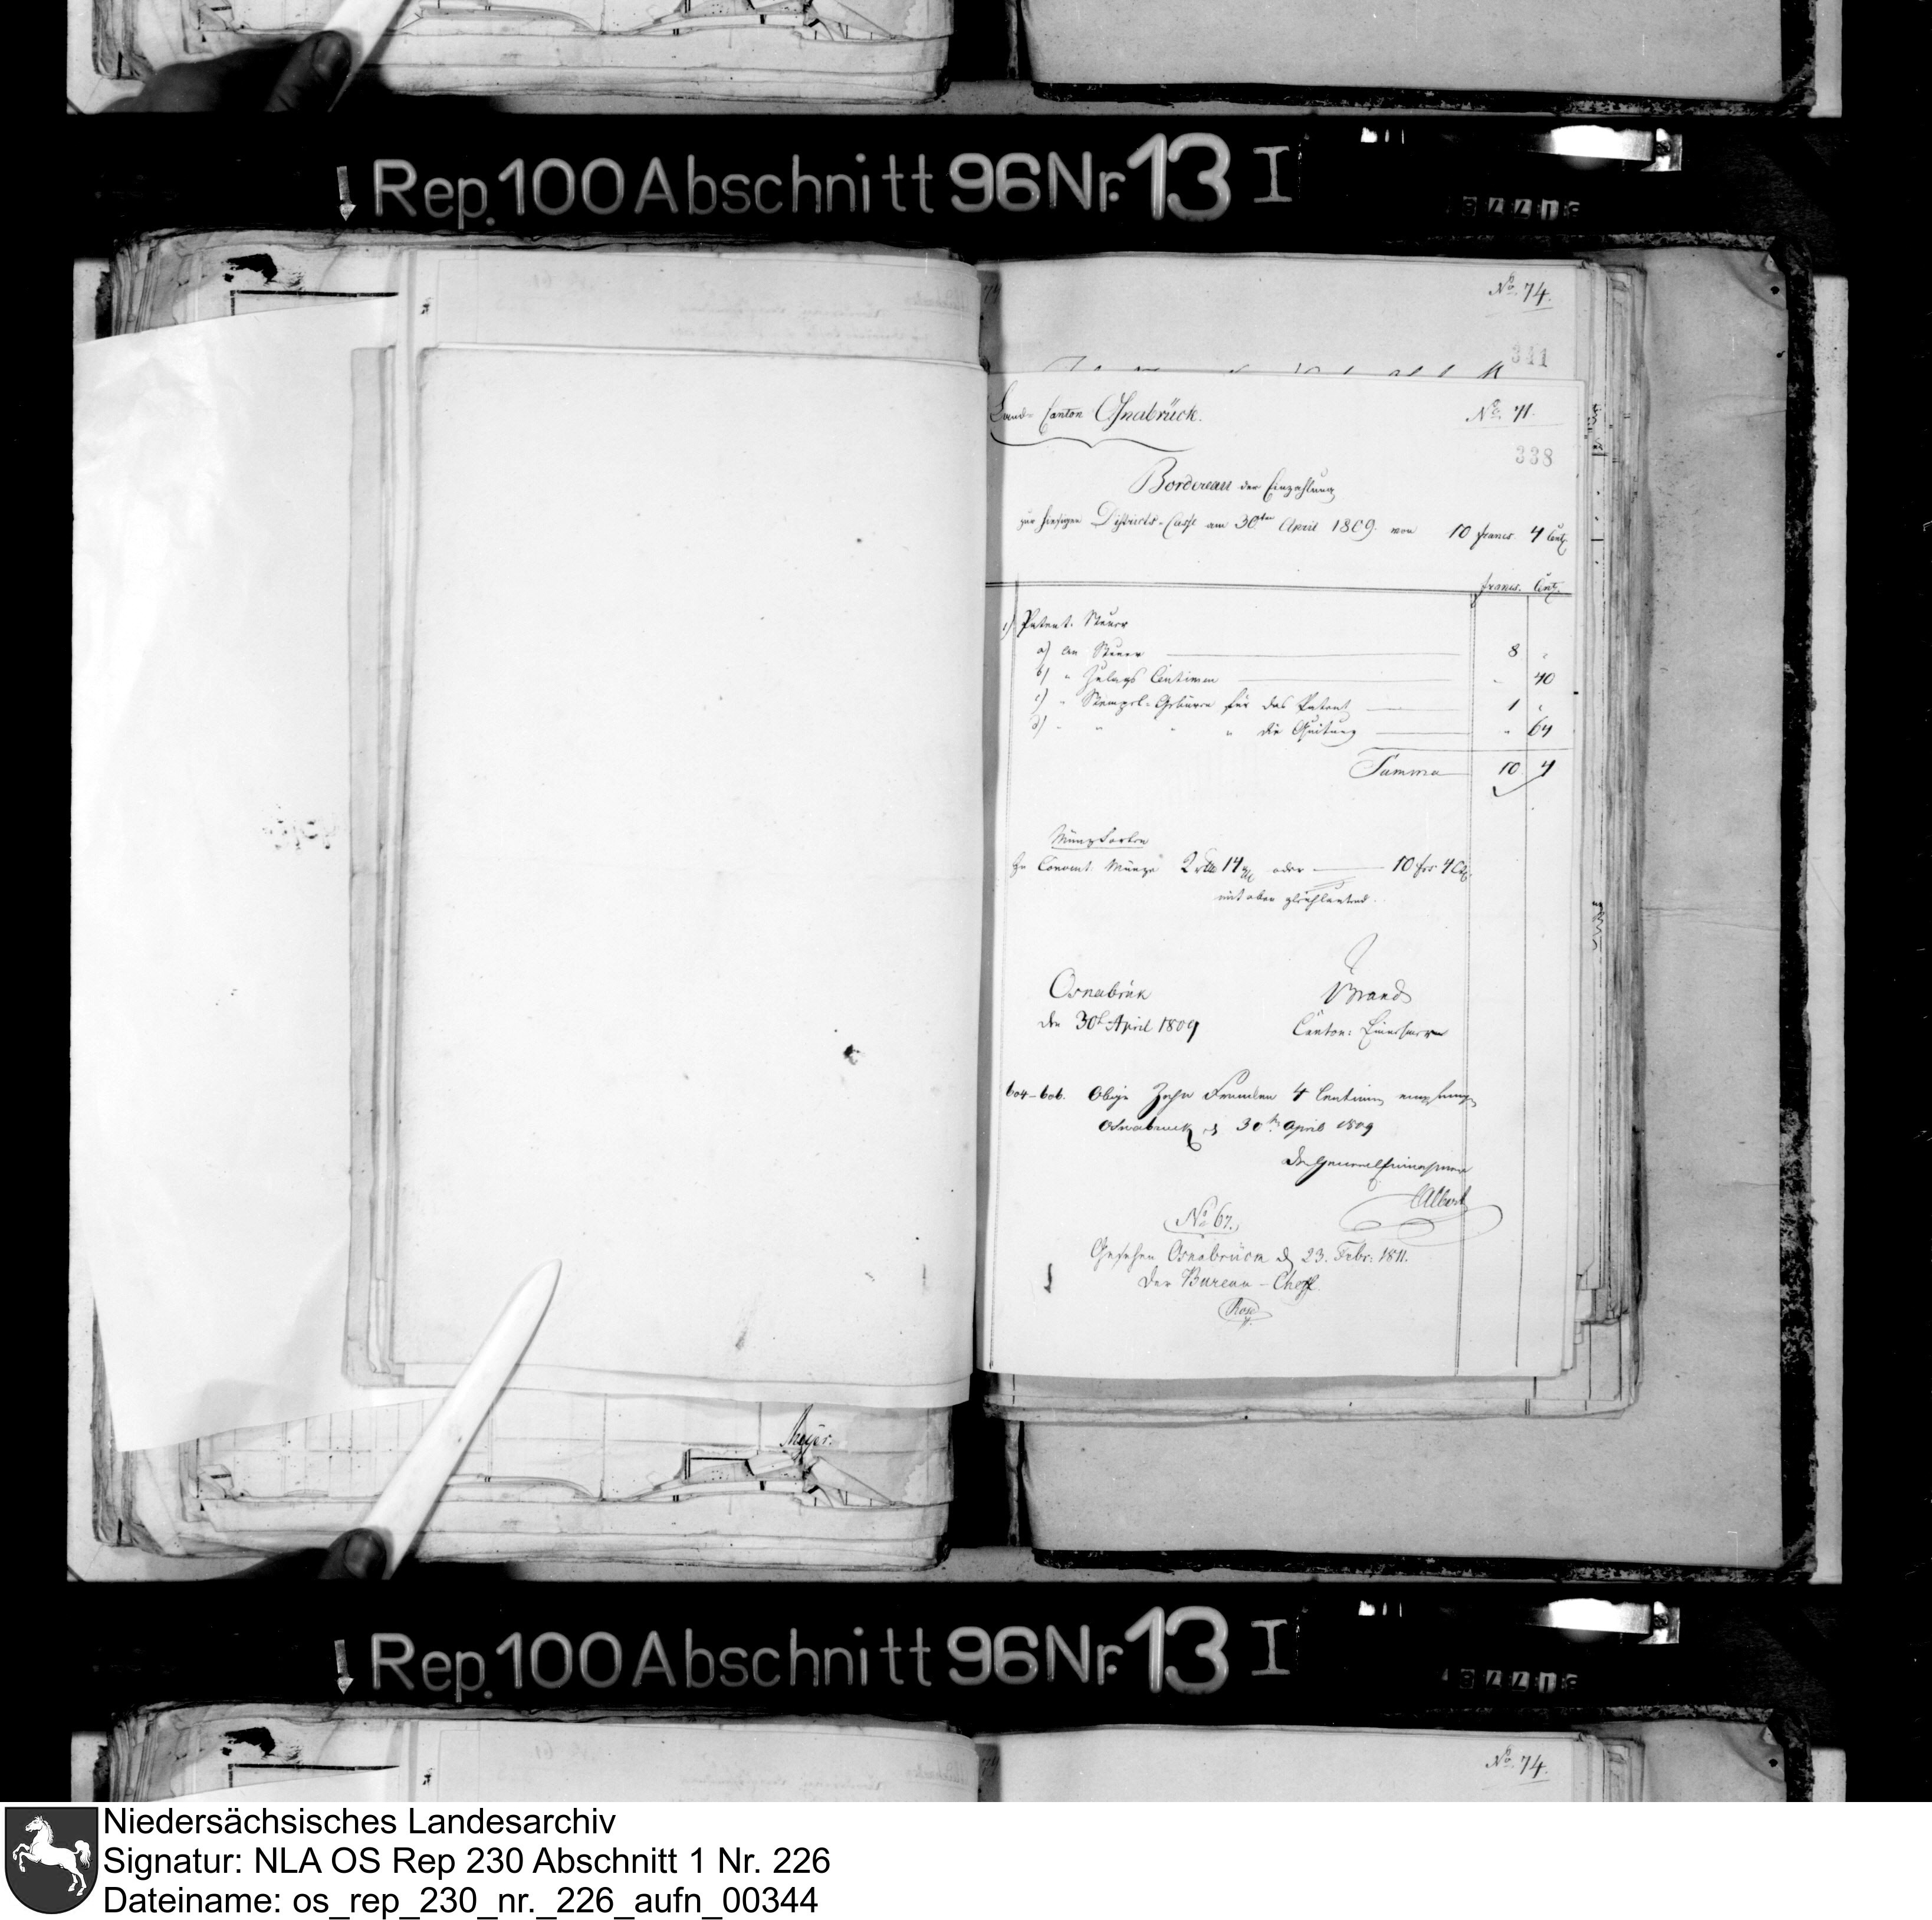 Rep. 100 Abschnitt 96 Nr. 13 I
No. 74.
341
Land-Canton Osnabrück.
No. 71.
338
Bordereau der Einzahlung
zur hiesigen Districts-Casse am 30ten April 1809. von 10 francs. 4 Cent.
francs. Cent.
1) Patent-Steuer
a) an Steuer 8 "
b) " Zulags Centimen " 40
c) " Stempel-Gebüren für das Patent 1 "
d) " " " " die Quitung " 64
Summa 10 4
Münzsorten
In Convent. Münze 2 rtl 14 oder 10 frs 4 Ct.
mit oben gleichlautend.
Osnabrück
den 30t April 1809
Brand
Canton: Einnehmer
604-606. Obige Zehn Franken 4 Centimen empfangen
Osnabrueck d 30ten April 1809
Der General Einnehmer
Albert
No 67.
Gesehen Osnabrück d 23. Febr: 1811.
Der Bureau-Cheff
Meyer.
Rep. 100 Abschnitt 96 Nr. 13 I
No. 74.
Niedersächsisches Landesarchiv
Signatur: NLA OS Rep 230 Abschnitt 1 Nr. 226
Dateiname: os_rep_230_nr._226_aufn_00344